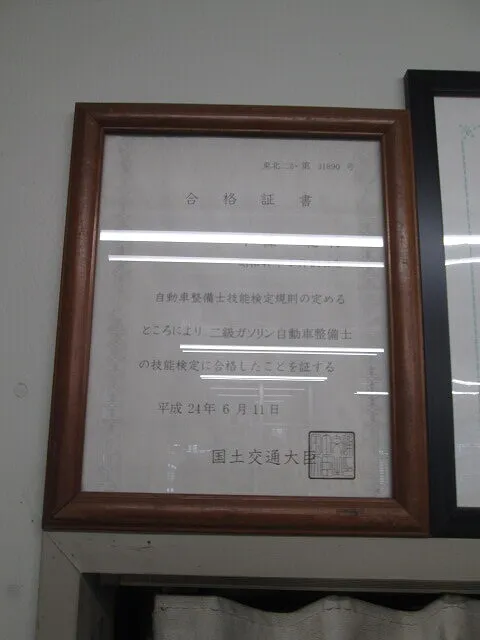 東北二ガ第 31890 号
合格証書
自動車整備士技能検定規則の定める
ところにより 二級ガソリン自動車整備士
の技能検定に合格したことを証する
平成 24年 6月11日
国土交通大臣